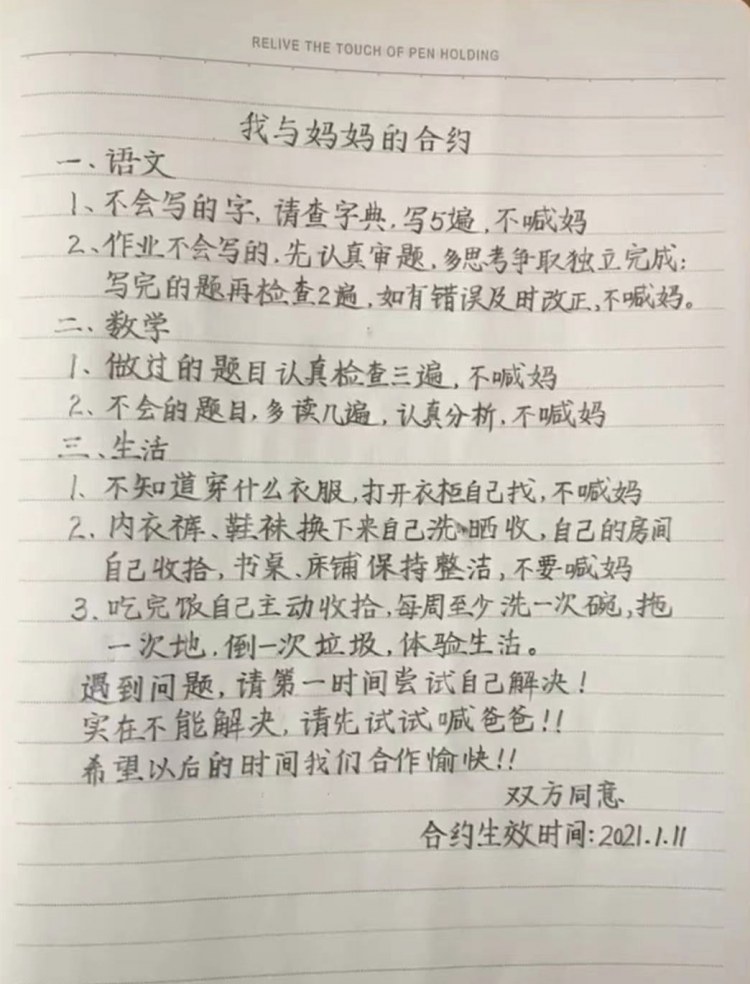 RELIVE THE TOUCH OF PEN HOLDING
我与妈妈的合约
一、语文
1、不会写的字,请查字典,写5遍,不喊妈
2、作业不会写的,先认真审题,多思考争取独立完成;
写完的题再检查2遍,如有错误及时改正,不喊妈。
二、数学
1、做过的题目认真检查三遍,不喊妈
2、不会的题目,多读几遍,认真分析,不喊妈
三、生活
1、不知道穿什么衣服,打开衣柜自己找,不喊妈
2、内衣裤、鞋袜换下来自己洗、晒收,自己的房间
自己收拾,书桌、床铺保持整洁,不要喊妈
3、吃完饭自己主动收拾,每周至少洗一次碗,拖
一次地,倒一次垃圾,体验生活。
遇到问题,请第一时间尝试自己解决!
实在不能解决,请先试试喊爸爸!!
希望以后的时间我们合作愉快!!
双方同意
合约生效时间:2021.1.11